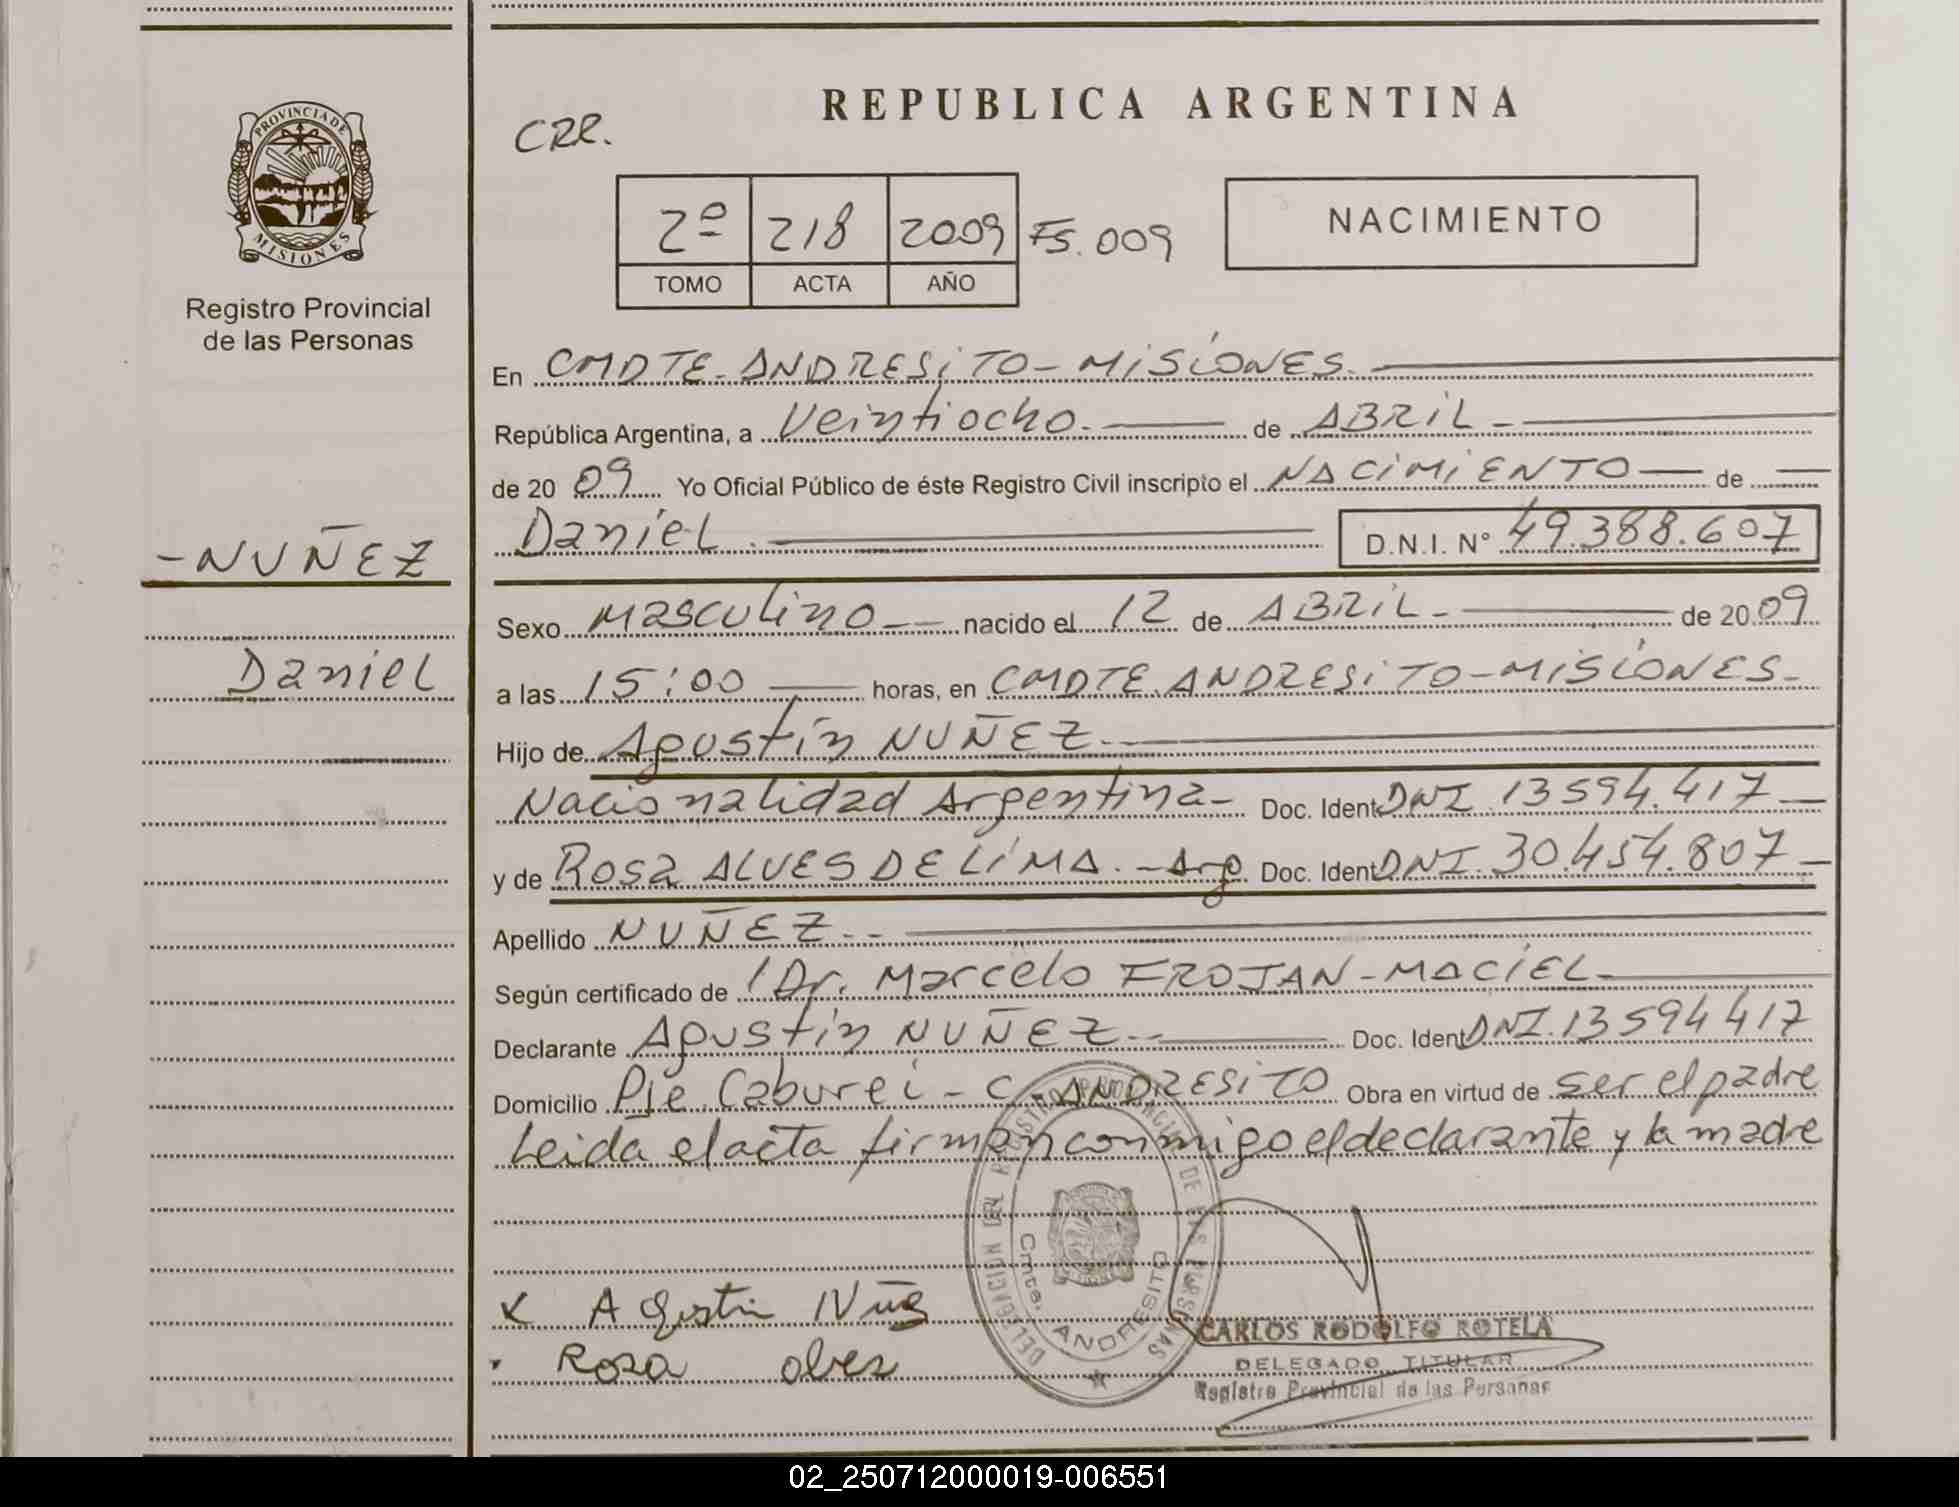 PROVINCIA DE
MISIONES
Registro Provincial
de las Personas
-NUÑEZ
Daniel
CRR.
REPUBLICA ARGENTINA
2º 218 2009 Fs. 009
TOMO ACTA AÑO
NACIMIENTO
En CMDTE. ANDRESiTO - MiSiONES.
República Argentina, a Veintiocho. de ABRiL -
de 20 09 Yo Oficial Público de éste Registro Civil inscripto el NACiMiENTO de
Daniel. D.N.I. N° 49.388.607
Sexo Masculino nacido el 12 de ABRiL - de 20 09
a las 15:00 horas, en CMDTE. ANDRESiTO - MiSiONES -
Hijo de Agustín NUÑEZ.
Nacionalidad Argentina - Doc. Ident DNI. 13594.417
y de Rosa ALVES DE LiMA. - Arg Doc. Ident DNI. 30.454.807
Apellido NUÑEZ.
Según certificado de Dr. Marcelo FROJAN - MACiEL
Declarante Agustín NUÑEZ Doc. Ident DNI. 13594417
Domicilio Pje Caburei - C. ANDRESiTO Obra en virtud de ser el padre
Leida el acta firman conmigo el declarante y la madre
DELEGACION DEL REGISTRO PROVINCIAL DE LAS PERSONAS
Cmte. ANDRESITO
Rosa
CARLOS RODOLFO ROTELA
DELEGADO TITULAR
Registro Provincial de las Personas
02_250712000019-006551